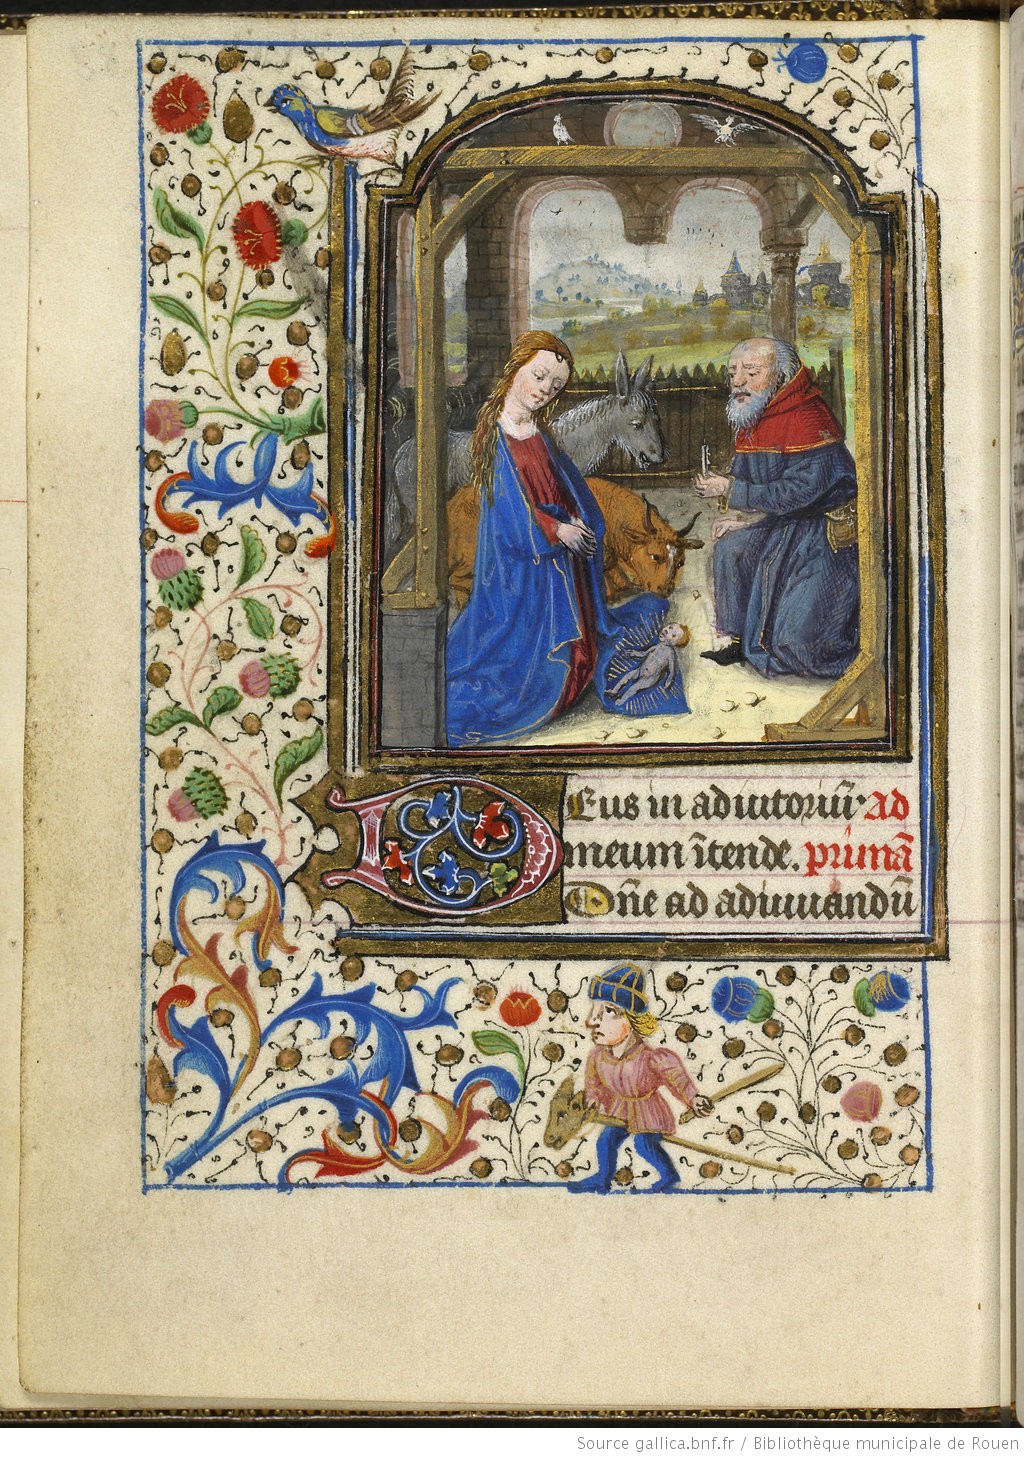 Deus in adiutoriū· Ad
meum ītende. primā
Dn̄e ad adiuuandū
Source gallica.bnf.fr / Bibliothèque municipale de Rouen